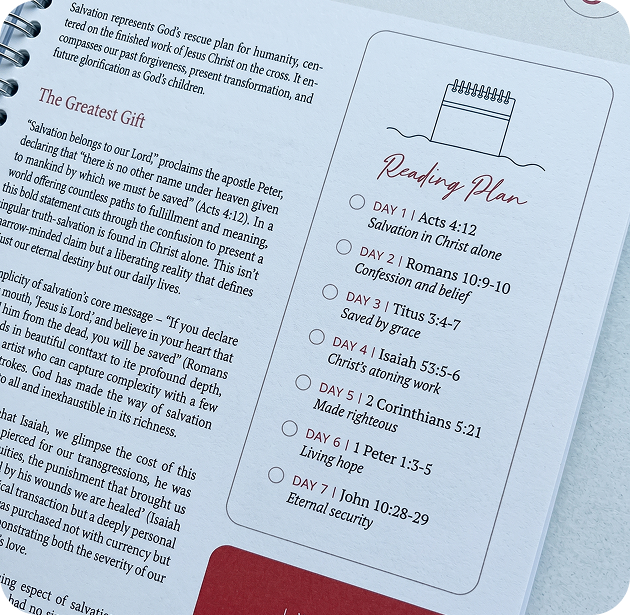 Salvation represents God's rescue plan for humanity, cen-
tered on the finished work of Jesus Christ on the cross. It en-
compasses our past forgiveness, present transformation, and
future glorification as God's children.
The Greatest Gift
"Salvation belongs to our Lord," proclaims the apostle Peter,
declaring that "there is no other name under heaven given
to mankind by which we must be saved" (Acts 4:12). In a
world offering countless paths to fullillment and meaning,
this bold statement cuts through the confusion to present a
ingular truth-salvation is found in Christ alone. This isn't
arrow-minded claim but a liberating reality that defines
ust our eternal destiny but our daily lives.
mplicity of salvation's core message – "If you declare
mouth, 'Jesus is Lord,' and believe in your heart that
him from the dead, you will be saved" (Romans
ds in beautiful contaxt to ite profound depth,
artist who can capture complexity with a few
trokes. God has made the way of salvation
to all and inexhaustible in its richness.
hat Isaiah, we glimpse the cost of this
pierced for our transgressions, he was
uities, the punishment that brought us
by his wounds we are healed' (Isaiah
ical transaction but a deeply personal
as purchased not with currency but
onstrating both the severity of our
's love.
ing aspect of salvatio
had no si
Reading Plan
DAY 1 | Acts 4:12
Salvation in Christ alone
DAY 2 | Romans 10:9-10
Confession and belief
DAY 3 | Titus 3:4-7
Saved by grace
DAY 4 | Isaiah 53:5-6
Christ's atoning work
DAY 5 | 2 Corinthians 5:21
Made righteous
DAY 6 | 1 Peter 1:3-5
Living hope
DAY 7 | John 10:28-29
Eternal security